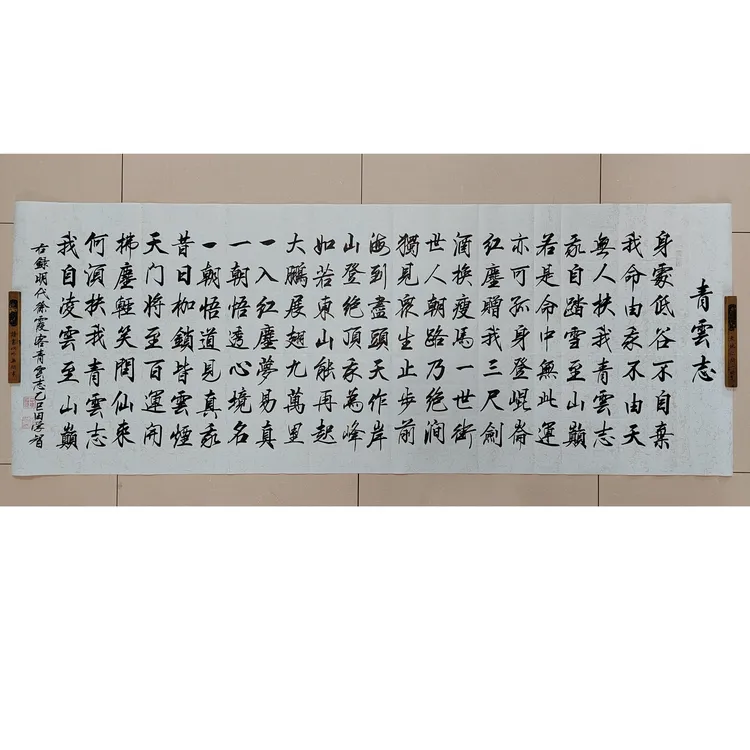 青雲志
身處低谷不自棄
我命由我不由天
無人扶我青雲志
我自踏雪至山巔
若是命中無此運
亦可孤身登崐崙
紅塵贈我三尺劍
酒換瘦馬一世街
世人朝路乃絕澗
獨見眾生止步前
海到盡頭天作岸
山登絕頂我為峰
如若東山能再起
大鵬展翅九萬里
一入紅塵夢易真
一朝悟透心境名
一朝悟道見真我
昔日枷鎖皆雲煙
天门將至百運開
拂塵輕笑問仙來
何須扶我青雲志
我自凌雲至山巔
右錄明代徐霞客青雲志乙巳田學智